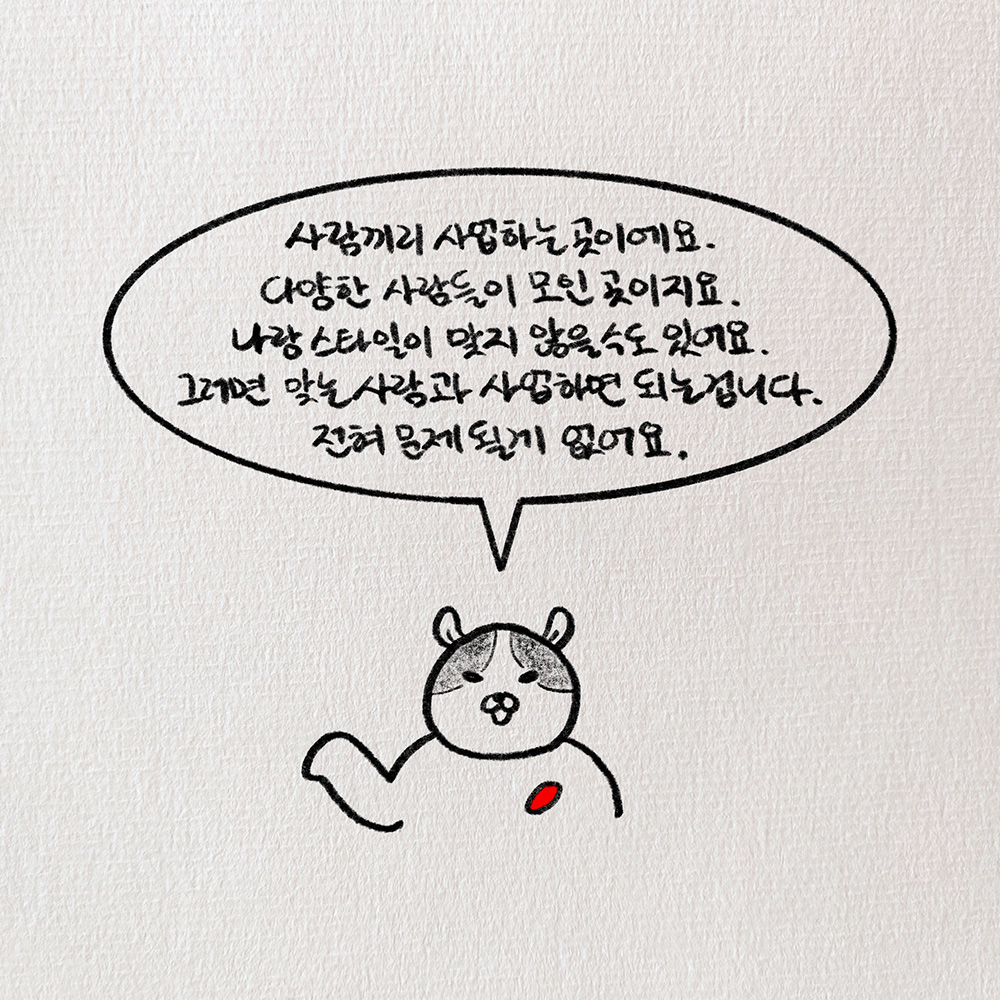 사람끼리 사업하는 곳이에요.
다양한 사람들이 모인 곳이지요.
나랑 스타일이 맞지 않을 수도 있어요.
그러면 맞는 사람과 사업하면 되는겁니다.
전혀 문제 될게 없어요.